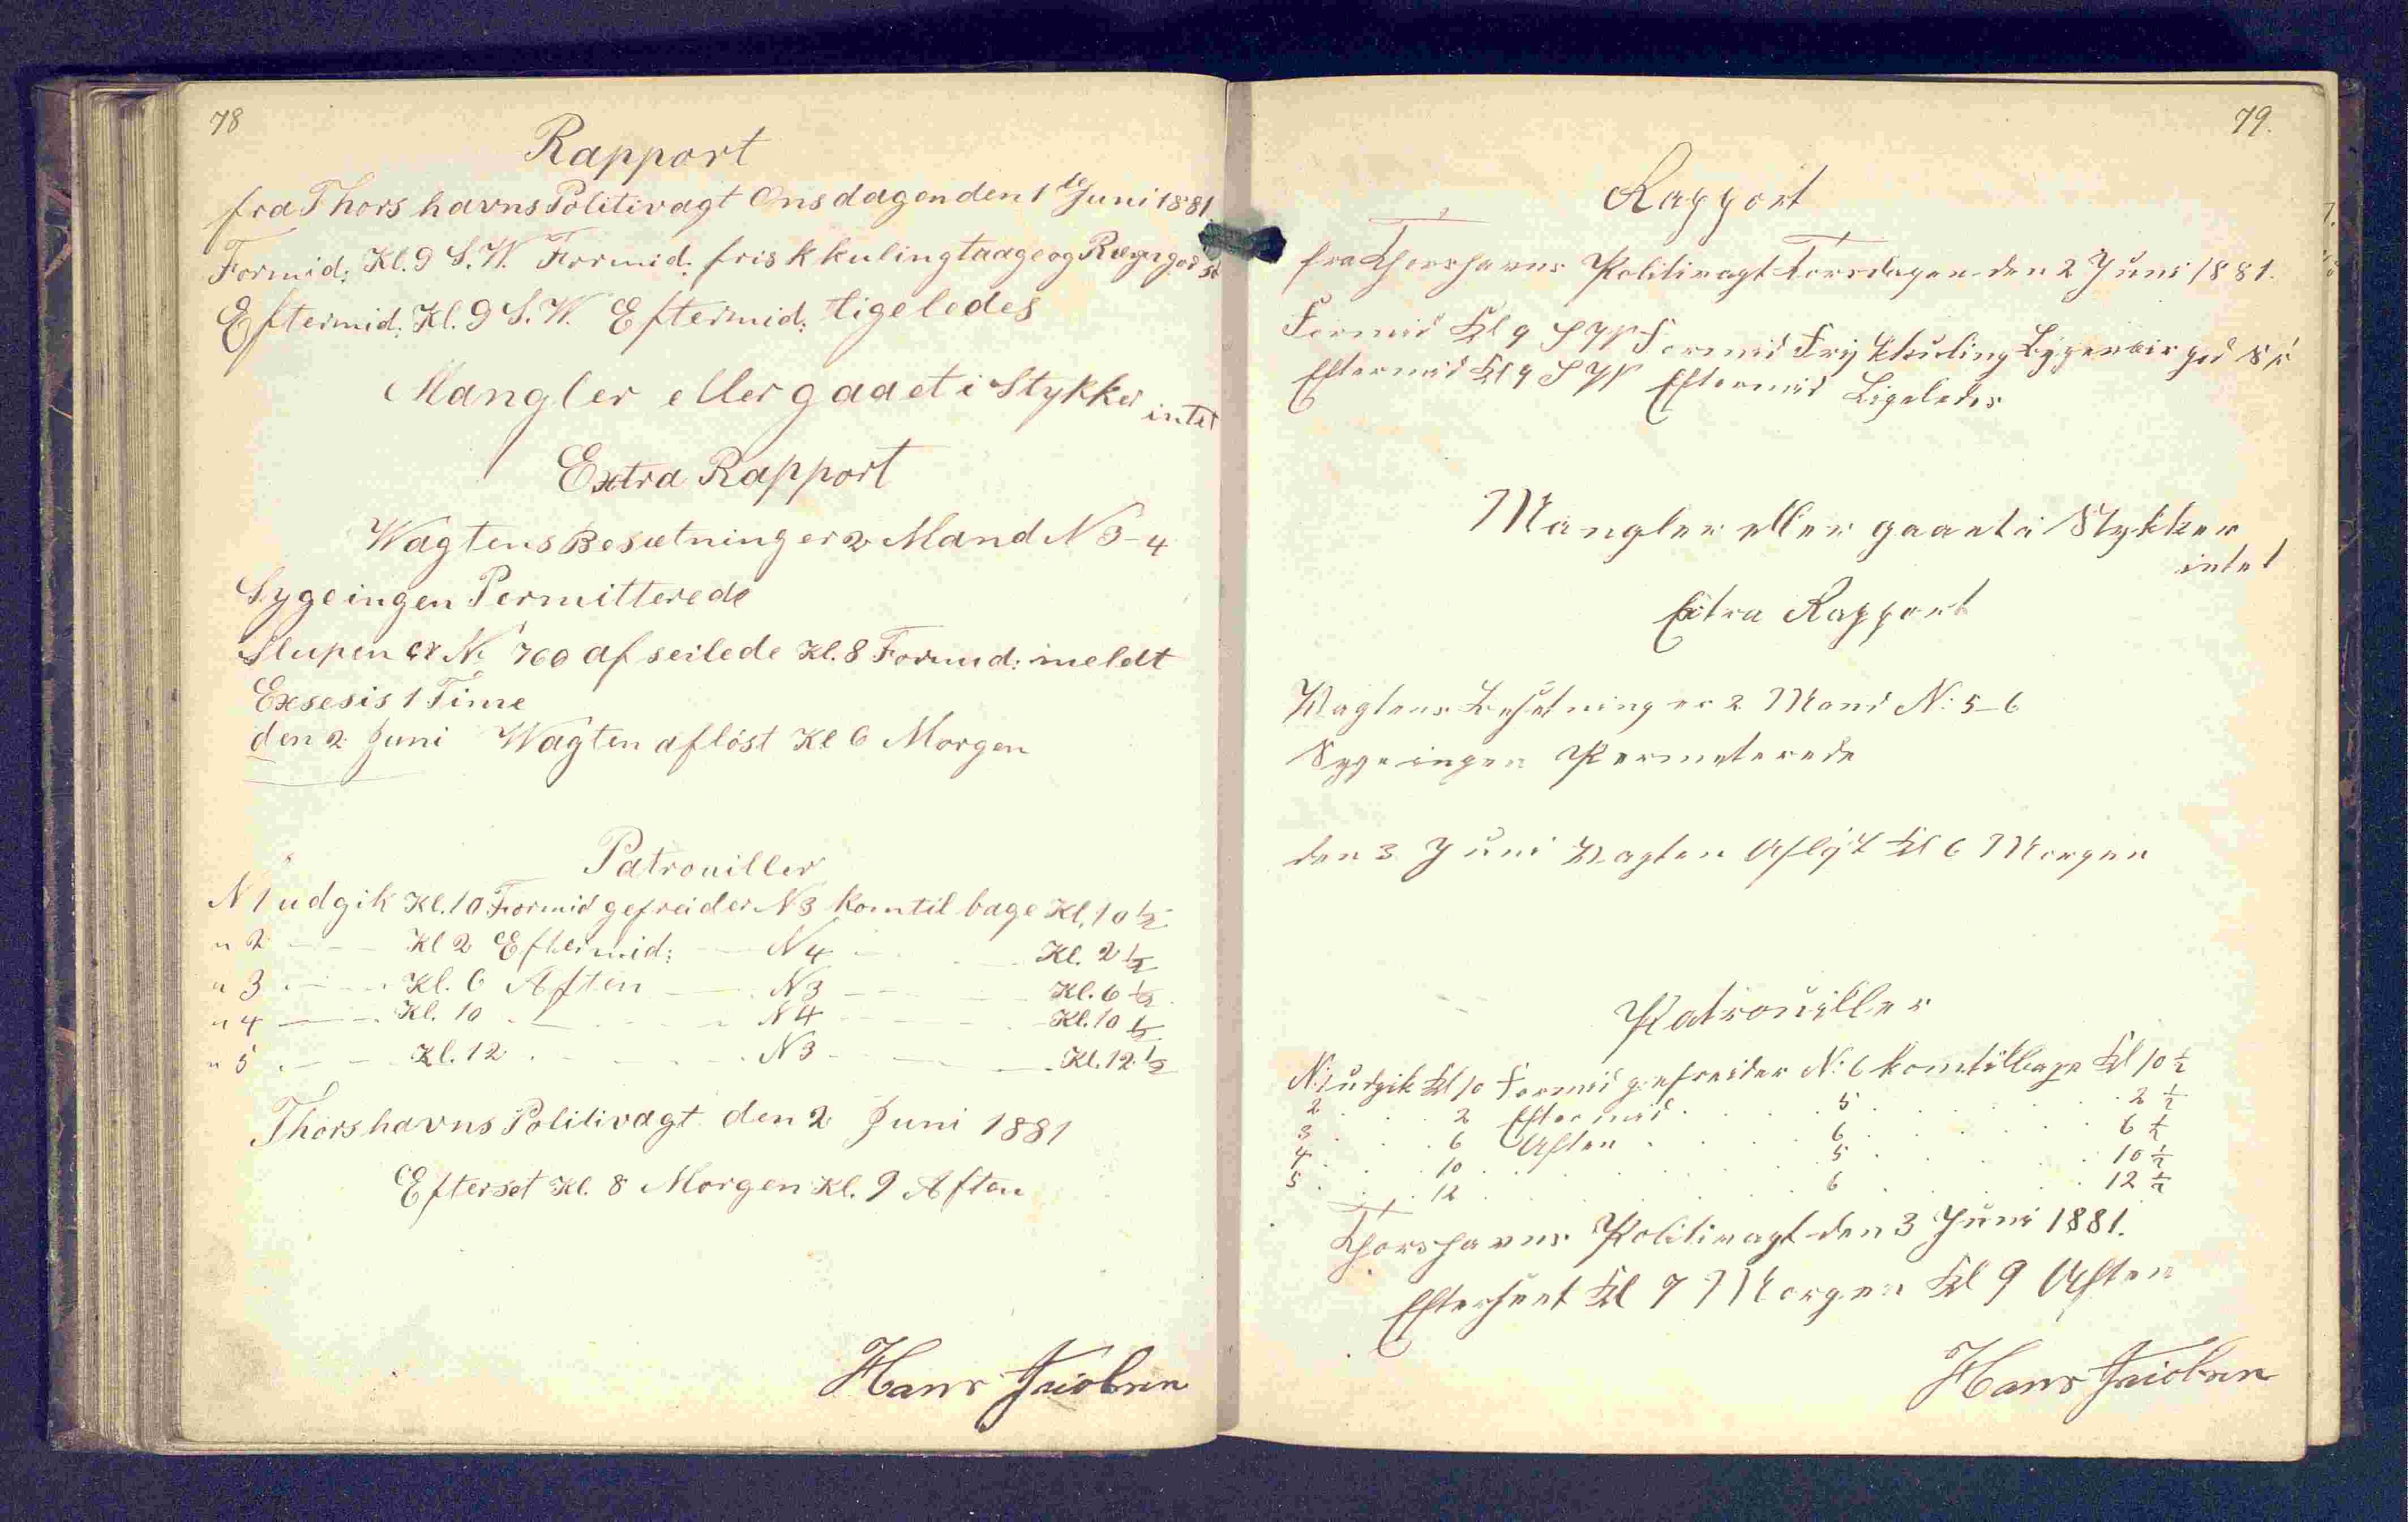 78
Rapport
fra Thorshavns Politivagt Onsdagen den 1te Juni 1881
Formid: Kl. 9 S.W. Formid: frisk kuling taage og Regn god St
Eftermid: Kl. 9 S.W. Eftermid: ligeledes
Mangler eller gaaet i Stykker intet
Extra Rapport
Wagtens Besætning er 2 Mand N 3-4
Syge ingen Permitterede
Slupen N: 760 af seilede Kl. 8 Formid: meldt
Exsesis 1 Time
den 2 Juni Wagten afløst Kl 6 Morgen
Patrouiller
N 1 udgik Kl. 10 Formid gefreider N 3 kom til bage Kl. 10 ½
" 2 — Kl 2 Eftermid: — N 4 — Kl. 2 ½
" 3 — Kl. 6 Aften — N 3 — Kl. 6 ½
" 4 — Kl. 10 — N 4 — Kl. 10 ½
" 5 — Kl. 12 — N 3 — Kl. 12 ½
Thorshavns Politivagt den 2 Juni 1881
Efterset Kl. 8 Morgen Kl. 9 Aften
Hans Jacobsen
79.
Rapport
fra Thorshavns Politivagt Torsdagen den 2 Juni 1881.
Formid Kl 9 S W Formid Frisk kuling god
Eftermid Kl 9 S W Eftermid Ligeledes
Mangler eller gaaet i Stykker
intet
Extra Rapport
Wagtens Besetning er 2 Mand N: 5-6
Syge ingen Permeterede
den 3 Juni Wagten Afløst Kl 6 Morgen
Patrouiller
N: 1 udgik Kl 10 Formid gefreider N: 6 kom tilbage Kl 10 ½
2 . . . 2 Eftermid . . . 5 . . . 2 ½
3 . . . 6 Aften . . . 6 . . . 6 ½
4 . . . 10 . . . 5 . . . 10 ½
5 . . . 12 . . . 6 . . . 12 ½
Thorshavns Politivagt den 3 Juni 1881.
Efterseet Kl 7 Morgen Kl 9 Aften
Hans Jacobsen